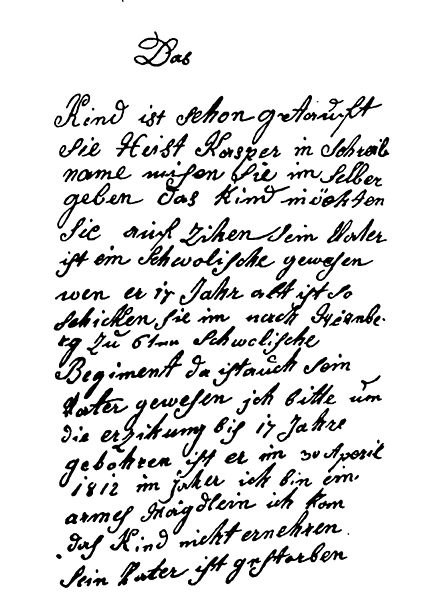 Das
Kind ist schon getauft
Sie Heist Kasper in Schreib
name misen Sie im selber
geben das Kind möchten
Sie auf Zihen Sein Vater
ist ein Schwolische gewesen
wen er 17 Jahr alt ist so
schicken sie im nach Nirnbe
rg zu 6ten Schwolische
Begiment da ist auch sein
Vater gewesen ich bitte um
die erzikung bis 17 Jahre
gebohren ist er im 30 Aperil
1812 im jaher ich bin ein
armes Mägdlein ich kan
das Kind nicht ernehren
Sein Vater ist gestorben